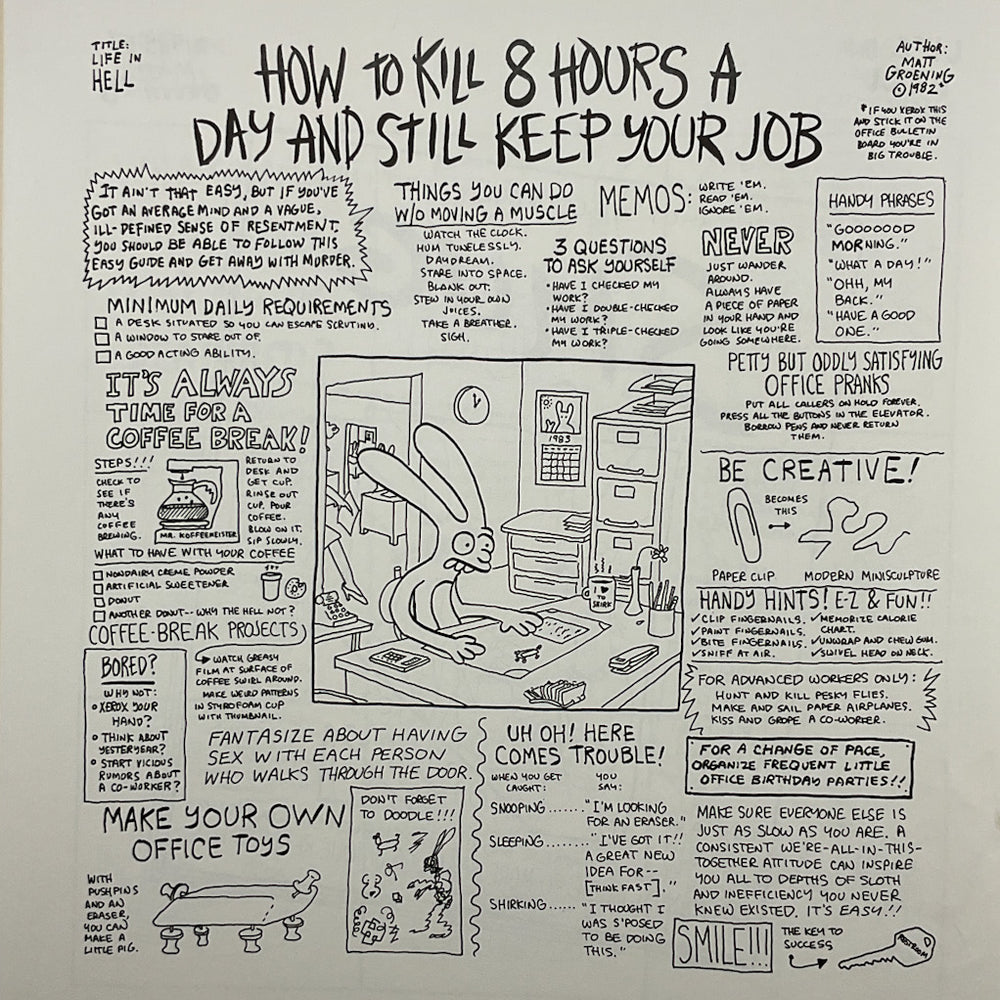 TITLE:
LIFE IN
HELL
HOW TO KILL 8 HOURS A
DAY AND STILL KEEP YOUR JOB
AUTHOR:
MATT
GROENING
©1982*
*IF YOU XEROX THIS
AND STICK IT ON THE
OFFICE BULLETIN
BOARD YOU'RE IN
BIG TROUBLE.
IT AIN'T THAT EASY, BUT IF YOU'VE
GOT AN AVERAGE MIND AND A VAGUE,
ILL-DEFINED SENSE OF RESENTMENT,
YOU SHOULD BE ABLE TO FOLLOW THIS
EASY GUIDE AND GET AWAY WITH MURDER.
MINIMUM DAILY REQUIREMENTS
A DESK SITUATED SO YOU CAN ESCAPE SCRUTINY.
A WINDOW TO STARE OUT OF.
A GOOD ACTING ABILITY.
THINGS YOU CAN DO
W/O MOVING A MUSCLE
WATCH THE CLOCK.
HUM TUNELESSLY.
DAYDREAM.
STARE INTO SPACE.
BLANK OUT.
STEW IN YOUR OWN
JUICES.
TAKE A BREATHER.
SIGH.
3 QUESTIONS
TO ASK YOURSELF
•HAVE I CHECKED MY
WORK?
•HAVE I DOUBLE-CHECKED
MY WORK?
•HAVE I TRIPLE-CHECKED
MY WORK?
MEMOS:
WRITE 'EM.
READ 'EM.
IGNORE 'EM.
NEVER
JUST WANDER
AROUND.
ALWAYS HAVE
A PIECE OF PAPER
IN YOUR HAND AND
LOOK LIKE YOU'RE
GOING SOMEWHERE.
HANDY PHRASES
"GOOOOOOD
MORNING."
"WHAT A DAY!"
"OHH, MY
BACK."
"HAVE A GOOD
ONE."
IT'S ALWAYS
TIME FOR A
COFFEE BREAK!
STEPS!!!
CHECK TO
SEE IF
THERE'S
ANY
COFFEE
BREWING.
MR. KOFFEEMEISTER
RETURN TO
DESK AND
GET CUP.
RINSE OUT
CUP. POUR
COFFEE.
BLOW ON IT.
SIP SLOWLY.
WHAT TO HAVE WITH YOUR COFFEE
NONDAIRY CREME POWDER
ARTIFICIAL SWEETENER
DONUT
ANOTHER DONUT--WHY THE HELL NOT?
COFFEE-BREAK PROJECTS
WATCH GREASY
FILM AT SURFACE OF
COFFEE SWIRL AROUND.
MAKE WEIRD PATTERNS
IN STYROFOAM CUP
WITH THUMBNAIL.
BORED?
WHY NOT:
•XEROX YOUR
HAND?
•THINK ABOUT
YESTERYEAR?
•START VICIOUS
RUMORS ABOUT
A CO-WORKER?
1983
I ♥
TO
SHIRK
PETTY BUT ODDLY SATISFYING
OFFICE PRANKS
PUT ALL CALLERS ON HOLD FOREVER.
PRESS ALL THE BUTTONS IN THE ELEVATOR.
BORROW PENS AND NEVER RETURN
THEM.
BE CREATIVE!
BECOMES
THIS
PAPER CLIP
MODERN MINISCULPTURE
HANDY HINTS! E-Z & FUN!!
✓CLIP FINGERNAILS.
✓PAINT FINGERNAILS.
✓BITE FINGERNAILS.
✓SNIFF AT AIR.
✓MEMORIZE CALORIE
CHART.
✓UNWRAP AND CHEW GUM.
✓SWIVEL HEAD ON NECK.
FOR ADVANCED WORKERS ONLY:
HUNT AND KILL PESKY FLIES.
MAKE AND SAIL PAPER AIRPLANES.
KISS AND GROPE A CO-WORKER.
FOR A CHANGE OF PACE,
ORGANIZE FREQUENT LITTLE
OFFICE BIRTHDAY PARTIES!!
FANTASIZE ABOUT HAVING
SEX WITH EACH PERSON
WHO WALKS THROUGH THE DOOR.
MAKE YOUR OWN
OFFICE TOYS
WITH
PUSHPINS
AND AN
ERASER,
YOU CAN
MAKE A
LITTLE PIG.
DON'T FORGET
TO DOODLE!!!
UH OH! HERE
COMES TROUBLE!
WHEN YOU GET
CAUGHT:
YOU
SAY:
SNOOPING......."I'M LOOKING
FOR AN ERASER."
SLEEPING........."I'VE GOT IT!!
A GREAT NEW
IDEA FOR--
[THINK FAST]."
SHIRKING......"I THOUGHT I
WAS S'POSED
TO BE DOING
THIS."
MAKE SURE EVERYONE ELSE IS
JUST AS SLOW AS YOU ARE. A
CONSISTENT WE'RE-ALL-IN-THIS-
TOGETHER ATTITUDE CAN INSPIRE
YOU ALL TO DEPTHS OF SLOTH
AND INEFFICIENCY YOU NEVER
KNEW EXISTED. IT'S EASY!!
SMILE!!!
THE KEY TO
SUCCESS
RESTROOM